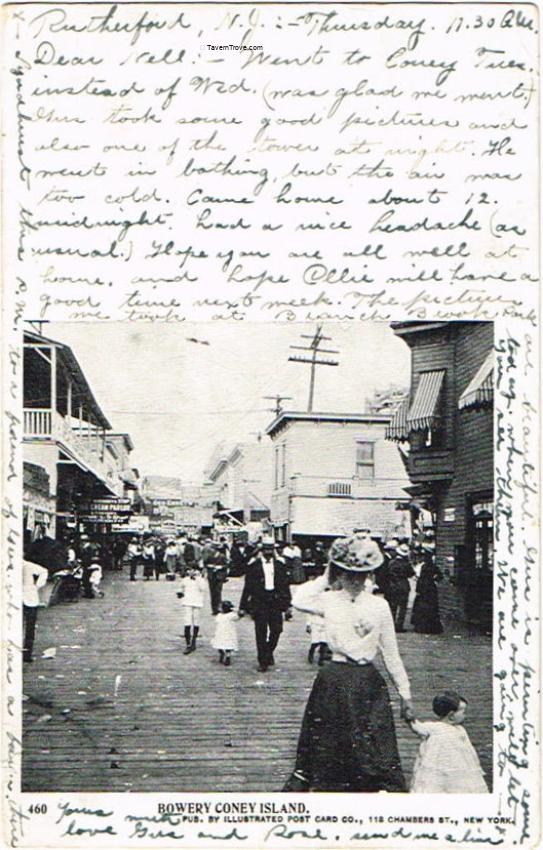 Rutherford, N.J. :- Thursday. 11.30 A.M.
© TavernTrove.com
Dear Nell :- Went to Coney Tues.
instead of Wed. (was glad we went.)
Gus took some good pictures and
also one of the tower at night. He
went in bathing, but the air was
too cold. Came home about 12.
midnight. had a nice headache (as
usual.) Hope you are all well at
home. and hope Ollie will have a
good time next week. The pictures
we took at Branch Brook Park
are beautiful. Gus is printing some
today. when you come over, will let
you see them. We are going to
Lyndhurst this P.M. to a friend of Gus. who has a
CREAM PARLOR
460
BOWERY CONEY ISLAND.
PUB. BY ILLUSTRATED POST CARD CO., 118 CHAMBERS ST., NEW YORK.
Yours with
love Gus and Rose. send me a line.